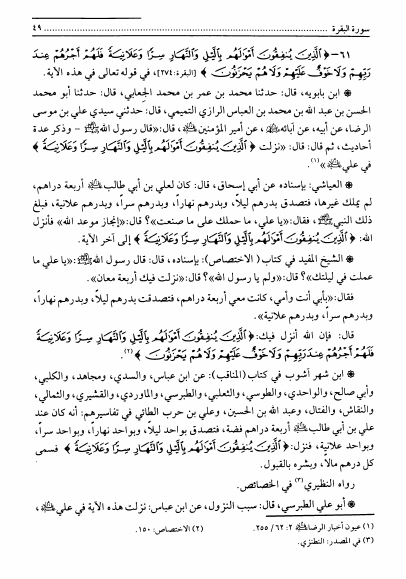 سورة البقرة ........ ٤٩
٦١- ﴿الَّذِينَ يُنفِقُونَ أَمْوَالَهُم بِاللَّيْلِ وَالنَّهَارِ سِرًّا وَعَلَانِيَةً فَلَهُمْ أَجْرُهُمْ عِندَ
رَبِّهِمْ وَلَا خَوْفٌ عَلَيْهِمْ وَلَا هُمْ يَحْزَنُونَ﴾ [البقرة: ٢٧٤]، في قوله تعالى في هذه الآية.
* ابن بابويه، قال: حدثنا محمد بن عمر بن محمد الجعابي، قال: حدثنا أبو محمد
الحسن بن عبد الله بن محمد بن العباس الرازي التميمي، قال: حدثني سيدي علي بن موسى
الرضا، عن أبيه، عن آبائه، عن أمير المؤمنين، قال: «قال رسول الله ﷺ - وذكر عدة
أحاديث، ثم قال: قال: «نزلت ﴿الَّذِينَ يُنفِقُونَ أَمْوَالَهُم بِاللَّيْلِ وَالنَّهَارِ سِرًّا وَعَلَانِيَةً﴾
في علي»(١).
* العياشي: بإسناده عن أبي إسحاق، قال: كان لعلي بن أبي طالب أربعة دراهم،
لم يملك غيرها، فتصدق بدرهم ليلاً، وبدرهم نهاراً، وبدرهم سراً، وبدرهم علانية، فبلغ
ذلك النبي ﷺ، فقال: «يا علي، ما حملك على ما صنعت»؟ قال: «إنجاز موعد الله» فأنزل
الله: ﴿الَّذِينَ يُنفِقُونَ أَمْوَالَهُم بِاللَّيْلِ وَالنَّهَارِ سِرًّا وَعَلَانِيَةً﴾ إلى آخر الآية.
* الشيخ المفيد في كتاب (الاختصاص): بإسناده، قال: قال رسول الله ﷺ: «يا علي ما
عملت في ليلتك»؟ قال: «ولم يا رسول الله»؟ قال: «نزلت فيك أربعة معان».
فقال: «بأبي أنت وأمي، كانت معي أربعة دراهم، فتصدقت بدرهم ليلاً، وبدرهم نهاراً،
وبدرهم سراً، وبدرهم علانية».
قال: فإن الله أنزل فيك: ﴿الَّذِينَ يُنفِقُونَ أَمْوَالَهُم بِاللَّيْلِ وَالنَّهَارِ سِرًّا وَعَلَانِيَةً
فَلَهُمْ أَجْرُهُمْ عِندَ رَبِّهِمْ وَلَا خَوْفٌ عَلَيْهِمْ وَلَا هُمْ يَحْزَنُونَ﴾(٢).
* ابن شهر آشوب في كتاب (المناقب): عن ابن عباس، والسدي، ومجاهد، والكلبي،
وأبي صالح، والواحدي، والطوسي، والثعلبي، والطبرسي، والماوردي، والقشيري، والثمالي،
والنقاش، والفتال، وعبد الله بن الحسين، وعلي بن حرب الطائي في تفاسيرهم: أنه كان عند
علي بن أبي طالب أربعة دراهم فضة، فتصدق بواحد ليلاً، وبواحد نهاراً، وبواحد سراً،
وبواحد علانية، فنزل: ﴿الَّذِينَ يُنفِقُونَ أَمْوَالَهُم بِاللَّيْلِ وَالنَّهَارِ سِرًّا وَعَلَانِيَةً﴾ فسمى
كل درهم مالاً، وبشره بالقبول.
رواه النطيري(٣) في الخصائص.
* أبو علي الطبرسي، قال: سبب النزول، عن ابن عباس: نزلت هذه الآية في علي،
(١) عيون أخبار الرضا ٢: ٦٢/ ٢٥٥.
(٢) الاختصاص: ١٥٠.
(٣) في المصدر: النطنزي.